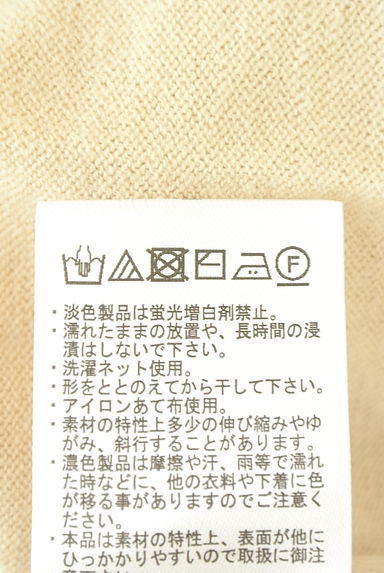 F
・淡色製品は蛍光増白剤禁止。
・濡れたままの放置や、長時間の浸
漬はしないで下さい。
・洗濯ネット使用。
・形をととのえてから干して下さい。
・アイロンあて布使用。
・素材の特性上多少の伸び縮みやゆ
がみ、斜行することがあります。
・濃色製品は摩擦や汗、雨等で濡れ
た時などに、他の衣料や下着に色
が移る事がありますのでご注意く
ださい。
・本品は素材の特性上、表面が他に
ひっかかりやすいので取扱に御注